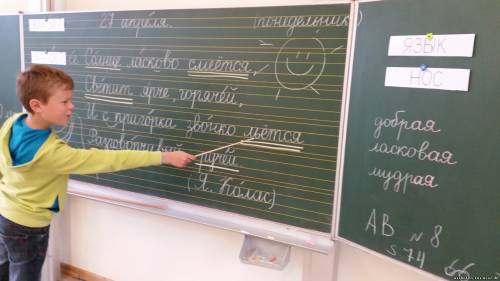 27 апреля. (понедельник)
Солнце ласково смеётся,
Светит ярче, горячей,
И с пригорка звонко льётся
Разговорчивый ручей.
(Я. Колас)
ЯЗЫК
НОС
добрая
ласковая
мудрая
АВ №8
с 74 66